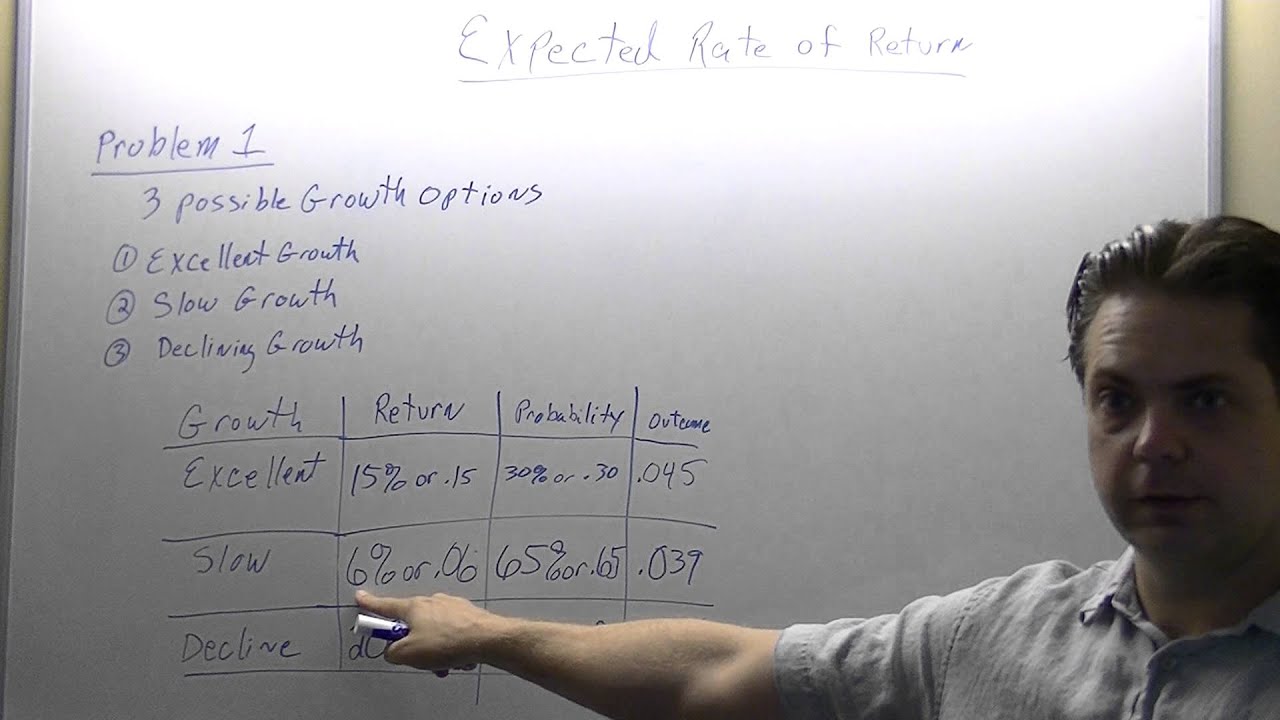 Expected Rate of Return
Problem 1
3 possible Growth Options
① Excellent Growth
② Slow Growth
③ Declining Growth
Growth Return Probability Outcome
Excellent 15% or .15 30% or .30 .045
Slow 6% or .06 65% or .65 .039
Decline